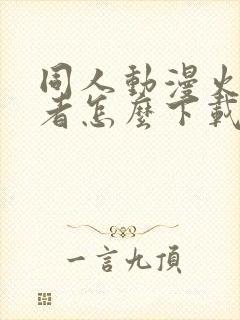 同人動漫火
者怎麼下載
一言九頂